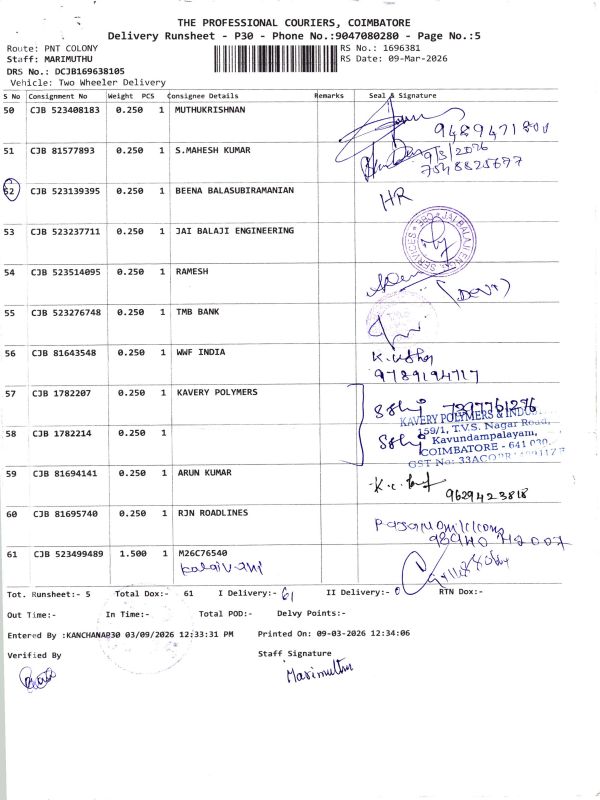 THE PROFESSIONAL COURIERS, COIMBATORE
Delivery Runsheet - P30 - Phone No.:9047080280 - Page No.:5
Route: PNT COLONY RS No.: 1696381
Staff: MARIMUTHU RS Date: 09-Mar-2026
DRS No.: DCJB169638105
Vehicle: Two Wheeler Delivery
S No Consignment No Weight PCS Consignee Details Remarks Seal & Signature
50 CJB 523408183 0.250 1 MUTHUKRISHNAN
51 CJB 81577893 0.250 1 S.MAHESH KUMAR 9/3/2026
7548825697
52 CJB 523139395 0.250 1 BEENA BALASUBIRAMANIAN HR
53 CJB 523237711 0.250 1 JAI BALAJI ENGINEERING
54 CJB 523514095 0.250 1 RAMESH
55 CJB 523276748 0.250 1 TMB BANK
56 CJB 81643548 0.250 1 WWF INDIA
9789194717
57 CJB 1782207 0.250 1 KAVERY POLYMERS
KAVERY POLYMERS &
159/1, T.V.S. Nagar Road,
58 CJB 1782214 0.250 1 Kavundampalayam,
COIMBATORE - 641 030.
GST No: 33
59 CJB 81694141 0.250 1 ARUN KUMAR
9629423818
60 CJB 81695740 0.250 1 RJN ROADLINES
61 CJB 523499489 1.500 1 M26C76540
Kalaivani
Tot. Runsheet:- 5 Total Dox:- 61 I Delivery:- 61 II Delivery:- 0 RTN Dox:-
Out Time:- In Time:- Total POD:- Delvy Points:-
Entered By :KANCHANAP30 03/09/2026 12:33:31 PM Printed On: 09-03-2026 12:34:06
Verified By Staff Signature
Marimuthu